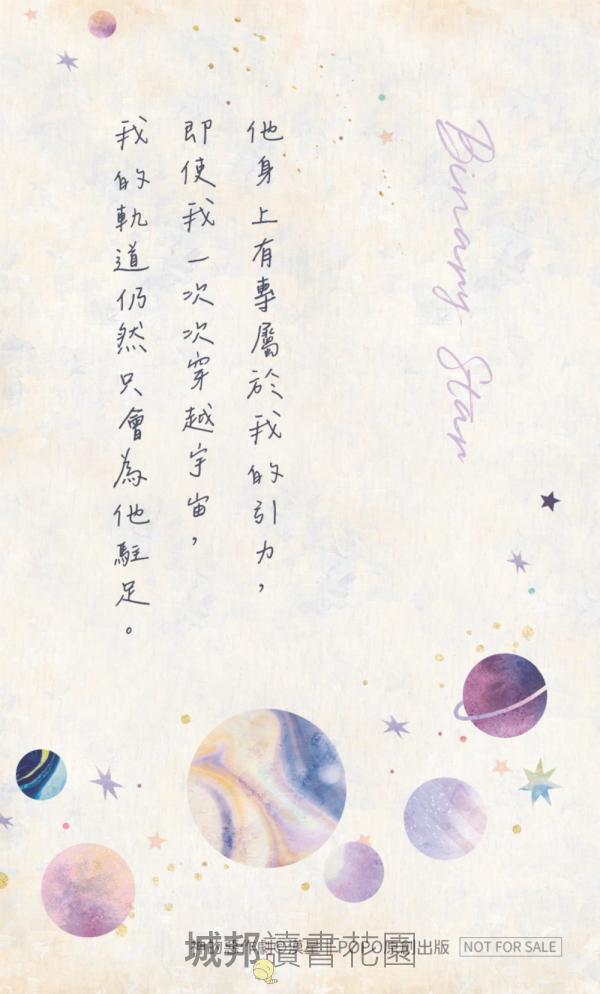 Binary Star
他身上有專屬於我的引力，
即使我一次次穿越宇宙，
我的軌道仍然只會為他駐足。
城邦讀書花園
POPO原創出版
NOT FOR SALE